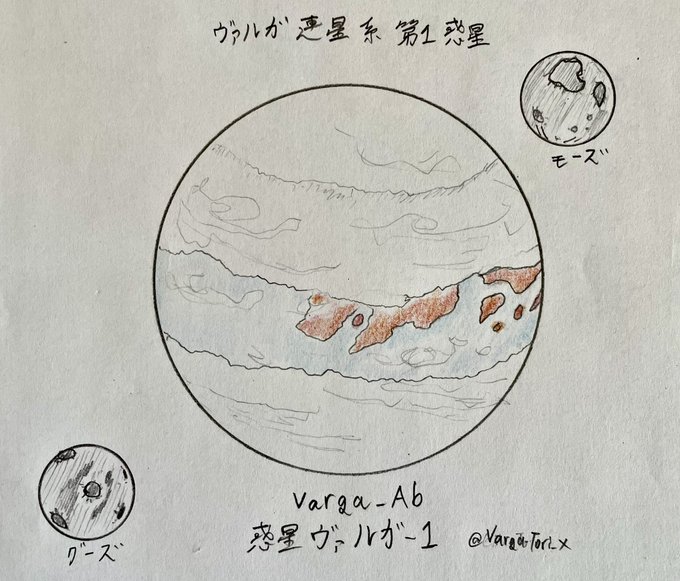 ヴァルガ連星系 第1惑星
モーズ
グーズ
Varga_Ab
惑星ヴァルガ-1
@VargaTori_x